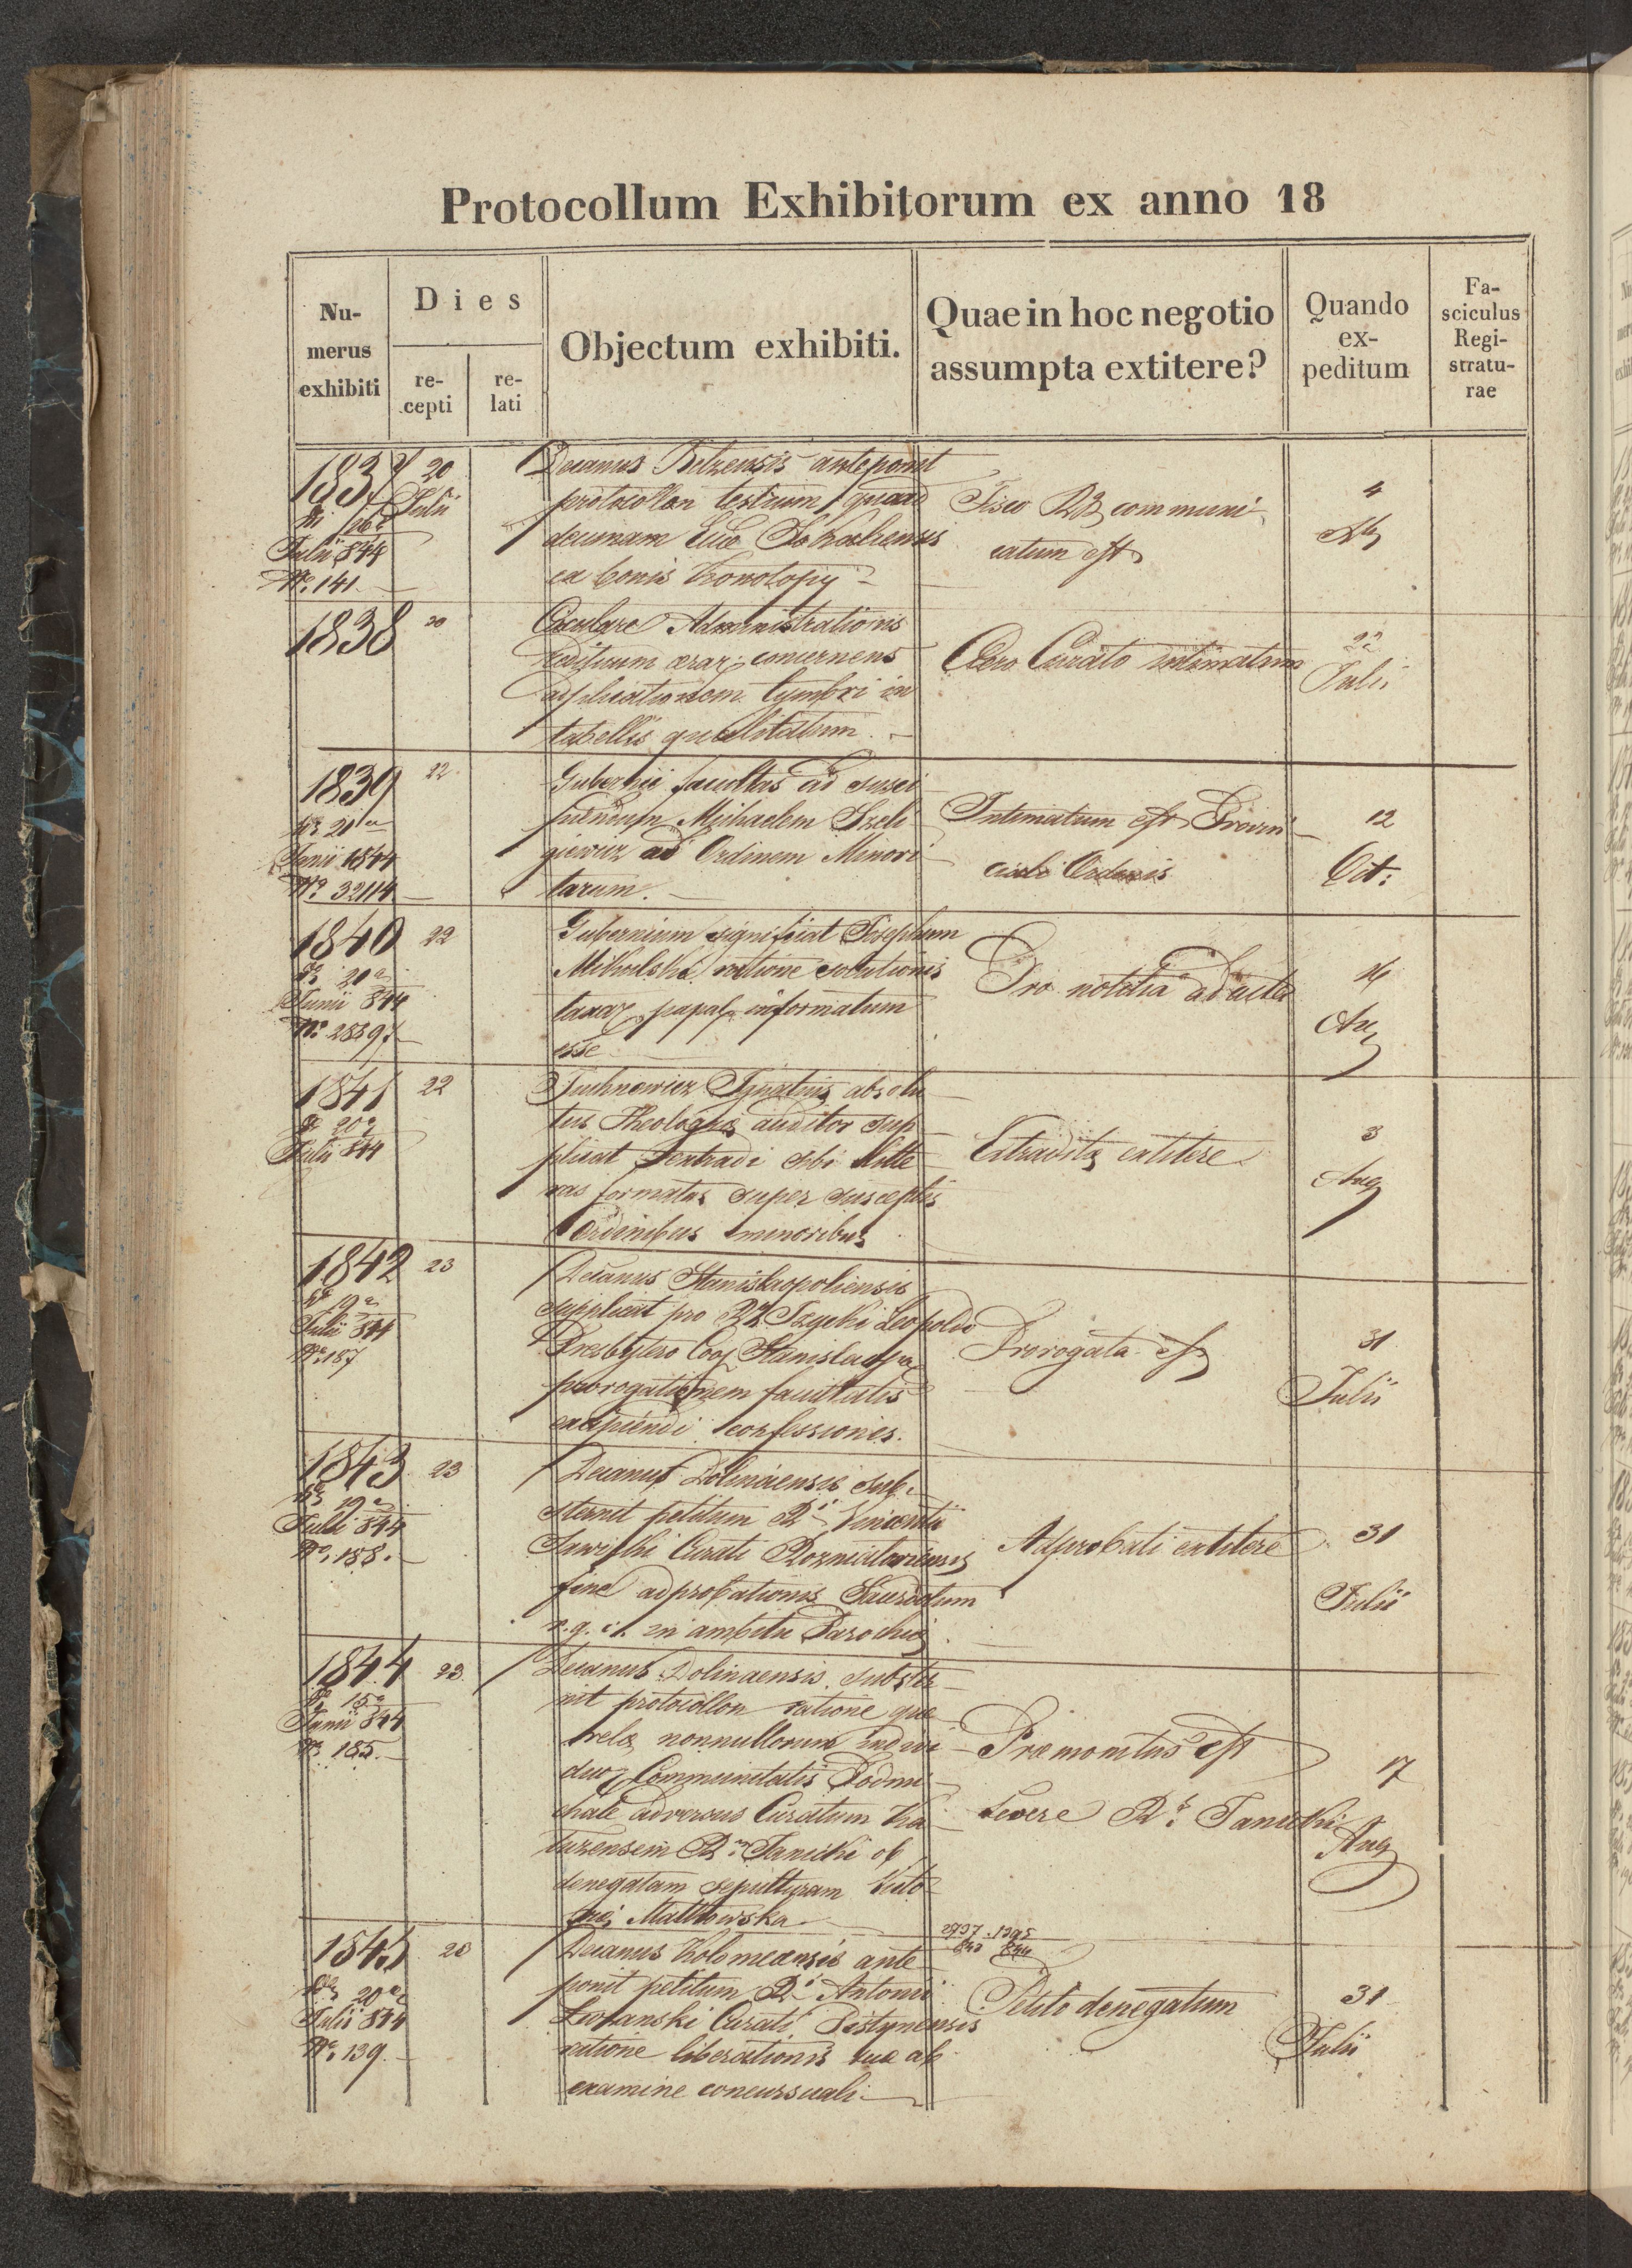 Protocollum Exhibitorum ex anno 18
Nu-
merus
exhibiti
Dies
re-
cepti
re-
lati
Objectum exhibiti.
Quae in hoc negotio
assumpta extitere?
Quando
ex-
peditum
Fa-
sciculus
Regi-
stratu-
rae
1837
20
Julii
Julii 844
No. 141
Decanus Belzensis anteponit
protocollon testium quoad
decimam Ecc Sokaliensis
ex bonis
Fisco communi
catum est
4
1838
20
Circulare Administrationis
aerar. concernens
applicationem tymbri in
tabellis qualitatum.
Clero Curato intimatum
22
Julii
1839
22
21
Junii 1844
No 32114
Gubernii facultas ad susci
piendum Michaelem Szeli
giewicz ad Ordinem Minori
tarum.
Intimatum est Provin
ciali Ordinis
12
Oct:
1840
22
20
Junii 844
No 28397
Gubernium significat Josephum
ratione solutionis
papal informatum
esse
Pro notitia ad acta
Au
1841
22
20
Julii 844
Juchnowicz Ignatius absolu
tus Theologiae auditor sup
plicat extradi sibi litte
ras formatas super susceptis
Ordinibus minoribus
Extraditae extitere
3
Aug
1842
23
19
Julii 844
No 187
Decanus Stanislaopoliensis
supplicat pro Leopoldo
Presbytero Coop
prorogationem facultatis
excipiendi confessiones.
Prorogata est
31
Julii
1843
23
19
Julii 844
No. 188.
Decanus Dolinaensis sub
sternit petitum Vincentii
Curati
fine adprobationis Sacerdotum
in ambitu Parochiae
Adprobati extitere
31
Julii
1844
23
15
Junii 844
No 185.
Decanus Dolinaensis substa
nit protocollon ratione que
relae nonnullorum indivi
duor Communitatis Podmi
chale adversus Curatum Ka
luzensem Janicki ob
denegatam sepulturam
Praemonitus est
severe Janicki
17
Aug
1845
20
Julii 844
No. 139.
Decanus Kolomeansis ante
ponit petitum Antonii
Curati Pistynensis
ratione liberationis suae ab
examine concursuali.
Petito denegatum
31
Julii